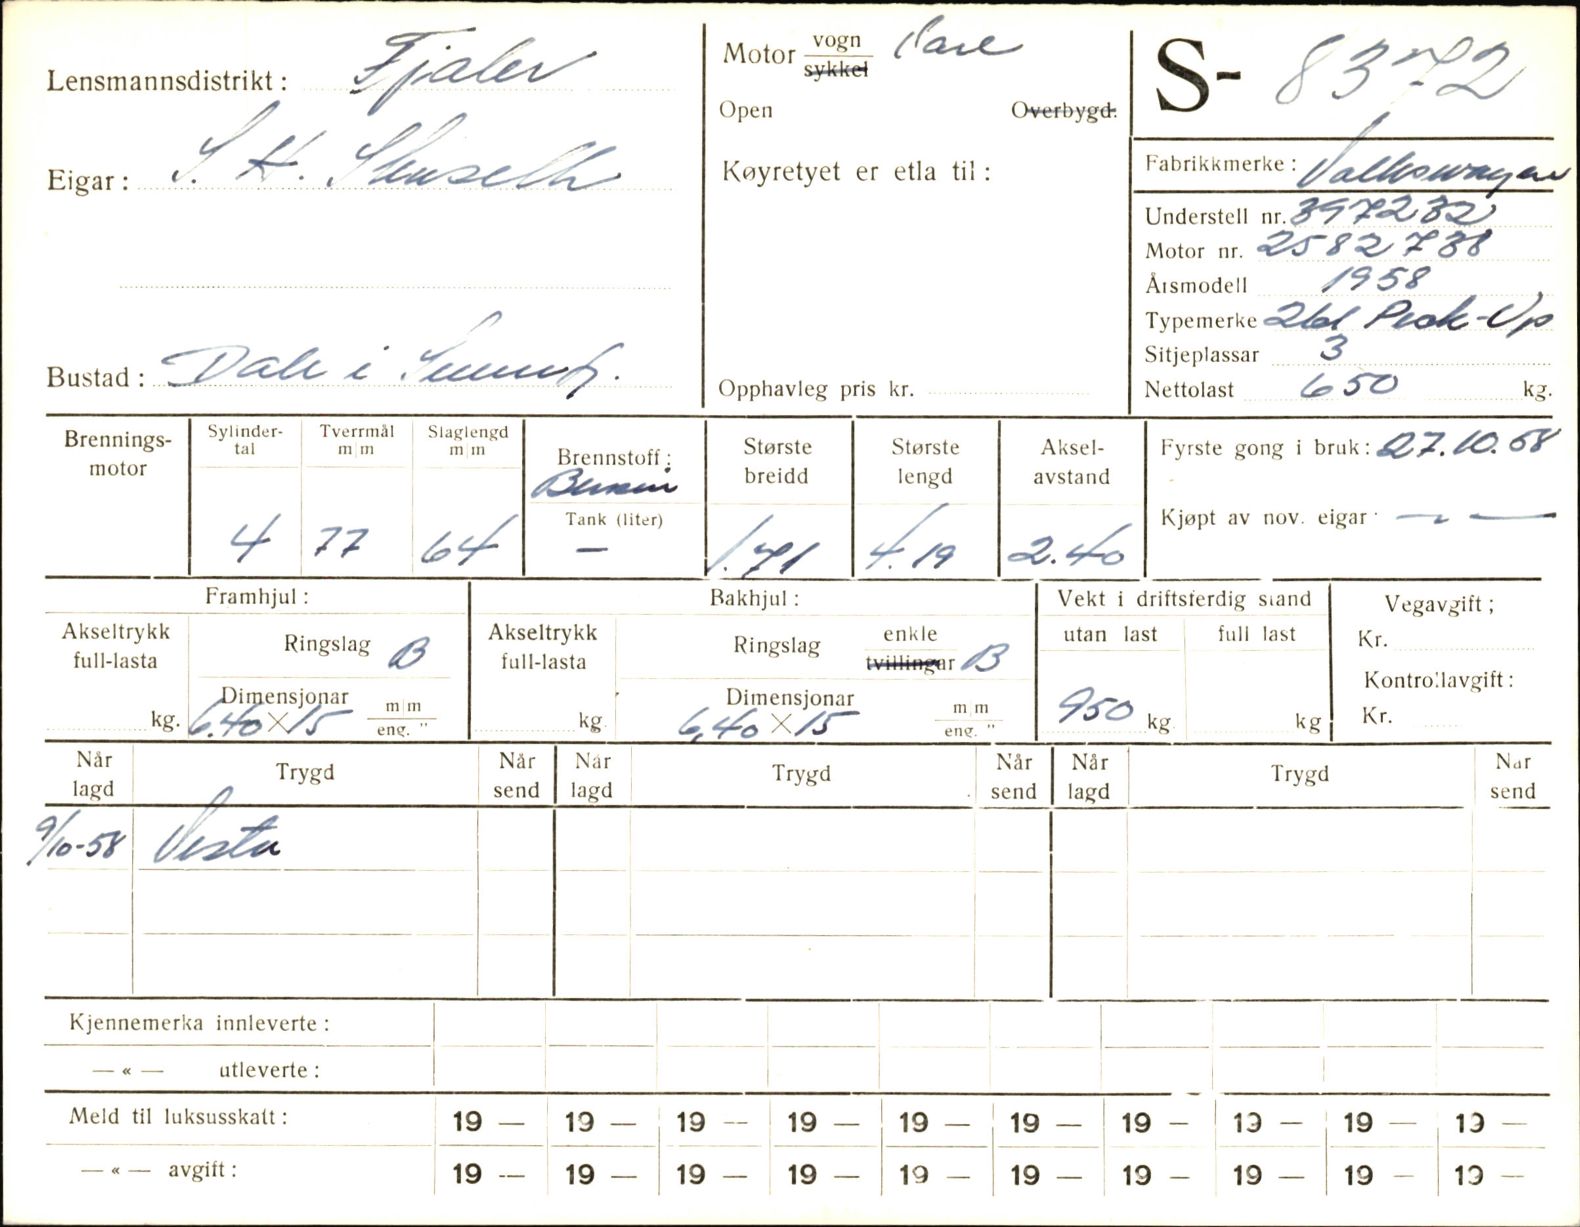 Lensmannsdistrikt: Fjaler
Eigar: S. H. Stenseth
Bustad: Dale i Sunnfj.
Motor vogn sykkel Vare
Open Overbygd.
Køyretyet er etla til:
Opphavleg pris kr.
S- 8372
Fabrikkmerke: Volkswagen
Understell nr. 397232
Motor nr. 2582738
Årsmodell 1958
Typemerke 26d Pick-Up
Sitjeplassar 3
Nettolast 650 kg.
Brennings-
motor
Sylinder-
tal
4
Tverrmål
m|m
77
Slaglengd
m|m
64
Brennstoff: Bensin
Tank (liter)
—
Største
breidd
1.71
Største
lengd
4.19
Aksel-
avstand
2.40
Fyrste gong i bruk: 27.10.58
Kjøpt av nov. eigar — " —
Framhjul:
Akseltrykk
full-lasta
kg.
Ringslag B
Dimensjonar
6.40 × 15 m|m eng. "
Bakhjul:
Akseltrykk
full-lasta
kg.
Ringslag enkle tvillingar B
Dimensjonar
6,40 × 15 m|m eng. "
Vekt i driftsferdig stand
utan last
950 kg.
full last
kg
Vegavgift;
Kr.
Kontrollavgift:
Kr.
Når
lagd
Trygd
Når
send
Når
lagd
Trygd
Når
send
Når
lagd
Trygd
Når
send
9/10-58 Vesta
Kjennemerka innleverte:
— « — utleverte:
Meld til luksusskatt: 19 — 19 — 19 — 19 — 19 — 19 — 19 — 19 — 19 — 19 —
— « — avgift: 19 — 19 — 19 — 19 — 19 — 19 — 19 — 19 — 19 — 19 —